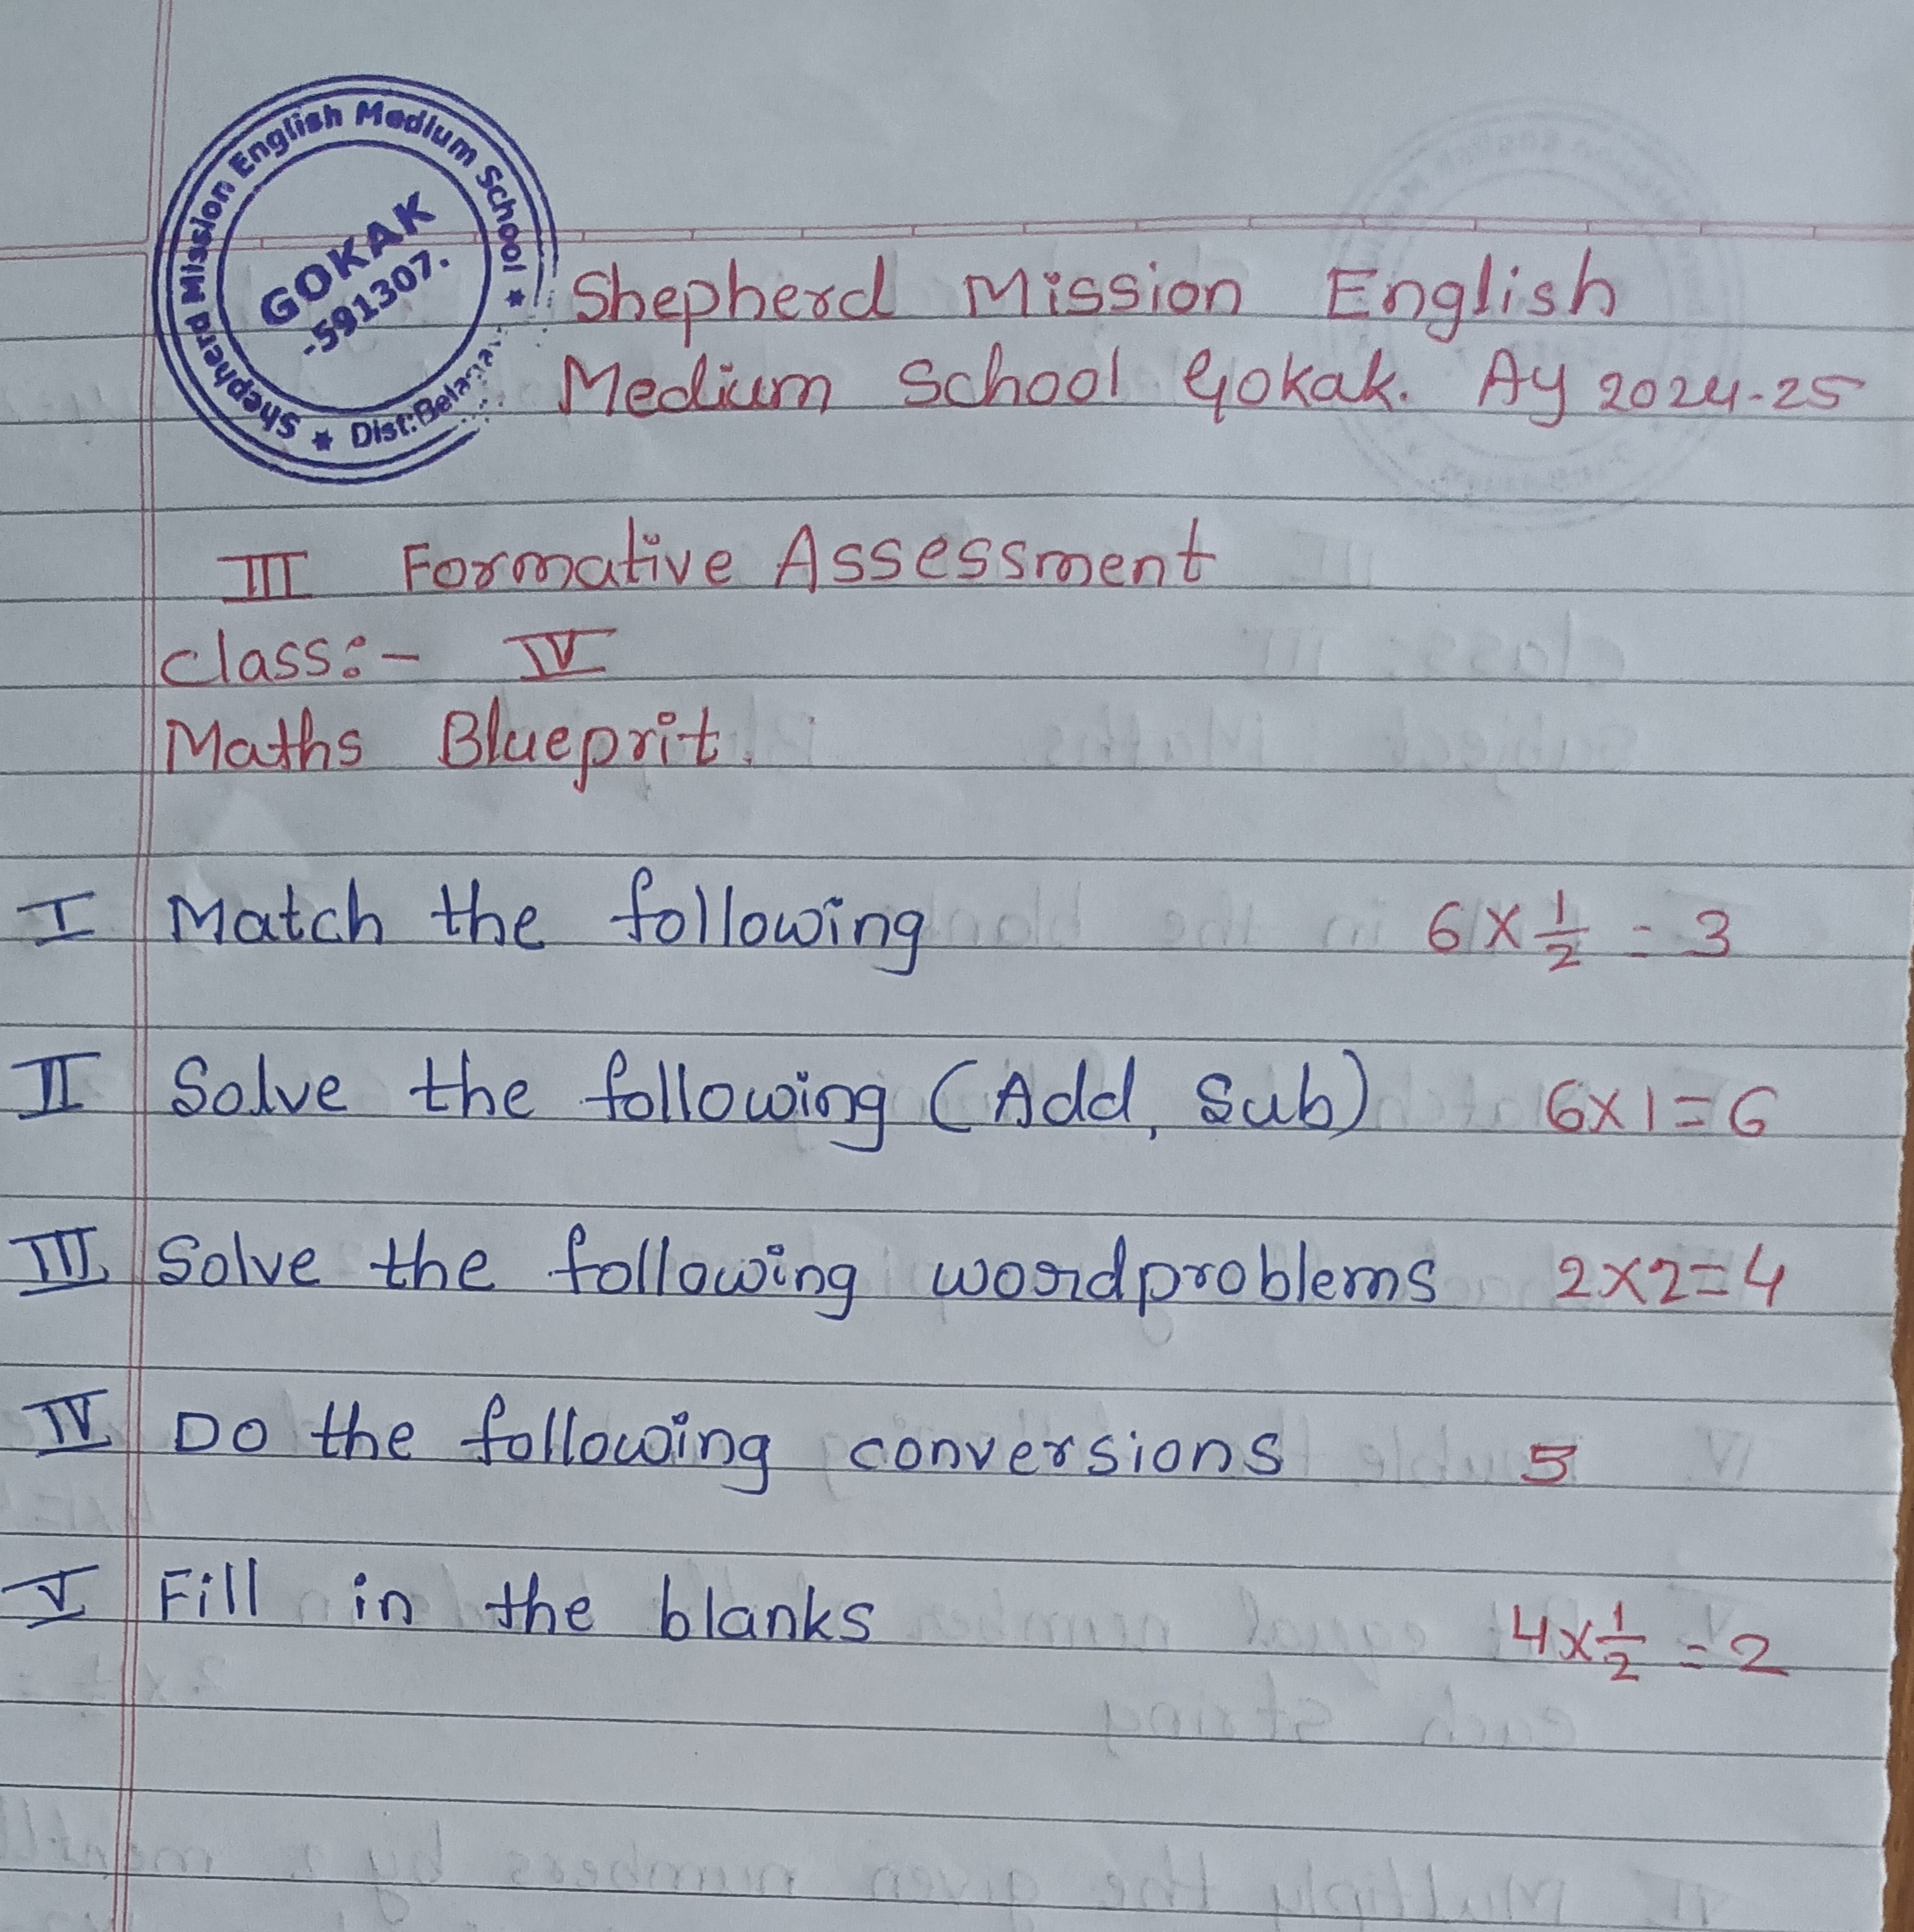 Shepherd Mission English Medium School
GOKAK
-591307.
Dist:
Shepherd Mission English
Medium School Gokak. AY 2024-25
III Formative Assessment
class:- IV
Maths Blueprit.
I Match the following 6 × 1/2 = 3
II Solve the following (Add, Sub) 6×1=6
III Solve the following wordproblems 2×2=4
IV Do the following conversions 5
V Fill in the blanks 4×1/2 =2